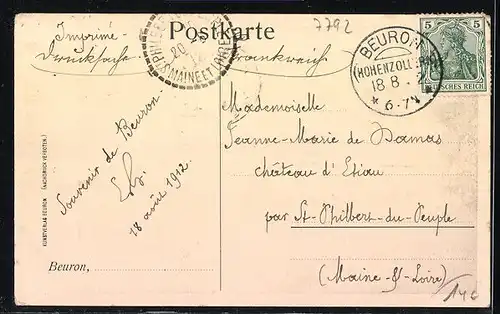 Postkarte
7792
Imprimé
Drucksache
Frankreich
20
MAINE ET LOIRE
BEURON
(HOHENZOLLERN)
18 8
* 6-7
5 5
DEUTSCHES REICH
Mademoiselle
Jeanne-Marie de Damas
château d'Etiau
par St-Philbert-du-Peuple
(Maine-&-Loire)
Souvenir de Beuron
18 août 1912
KUNSTVERLAG BEURON (NACHDRUCK VERBOTEN)
Beuron,